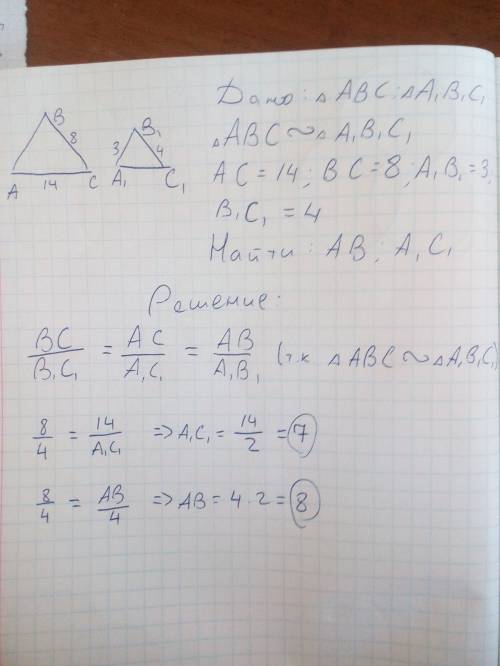 Дано: △ABC; △A₁B₁C₁
△ABC ∾ △A₁B₁C₁
AC = 14; BC = 8; A₁B₁ = 3;
B₁C₁ = 4
Найти: AB; A₁C₁
B
8
A 14 C
B₁
3 4
A₁ C₁
Решение:
BC/B₁C₁ = AC/A₁C₁ = AB/A₁B₁ (т.к △ABC ∾ △A₁B₁C₁)
8/4 = 14/A₁C₁ => A₁C₁ = 14/2 = 7
8/4 = AB/4 => AB = 4 · 2 = 8